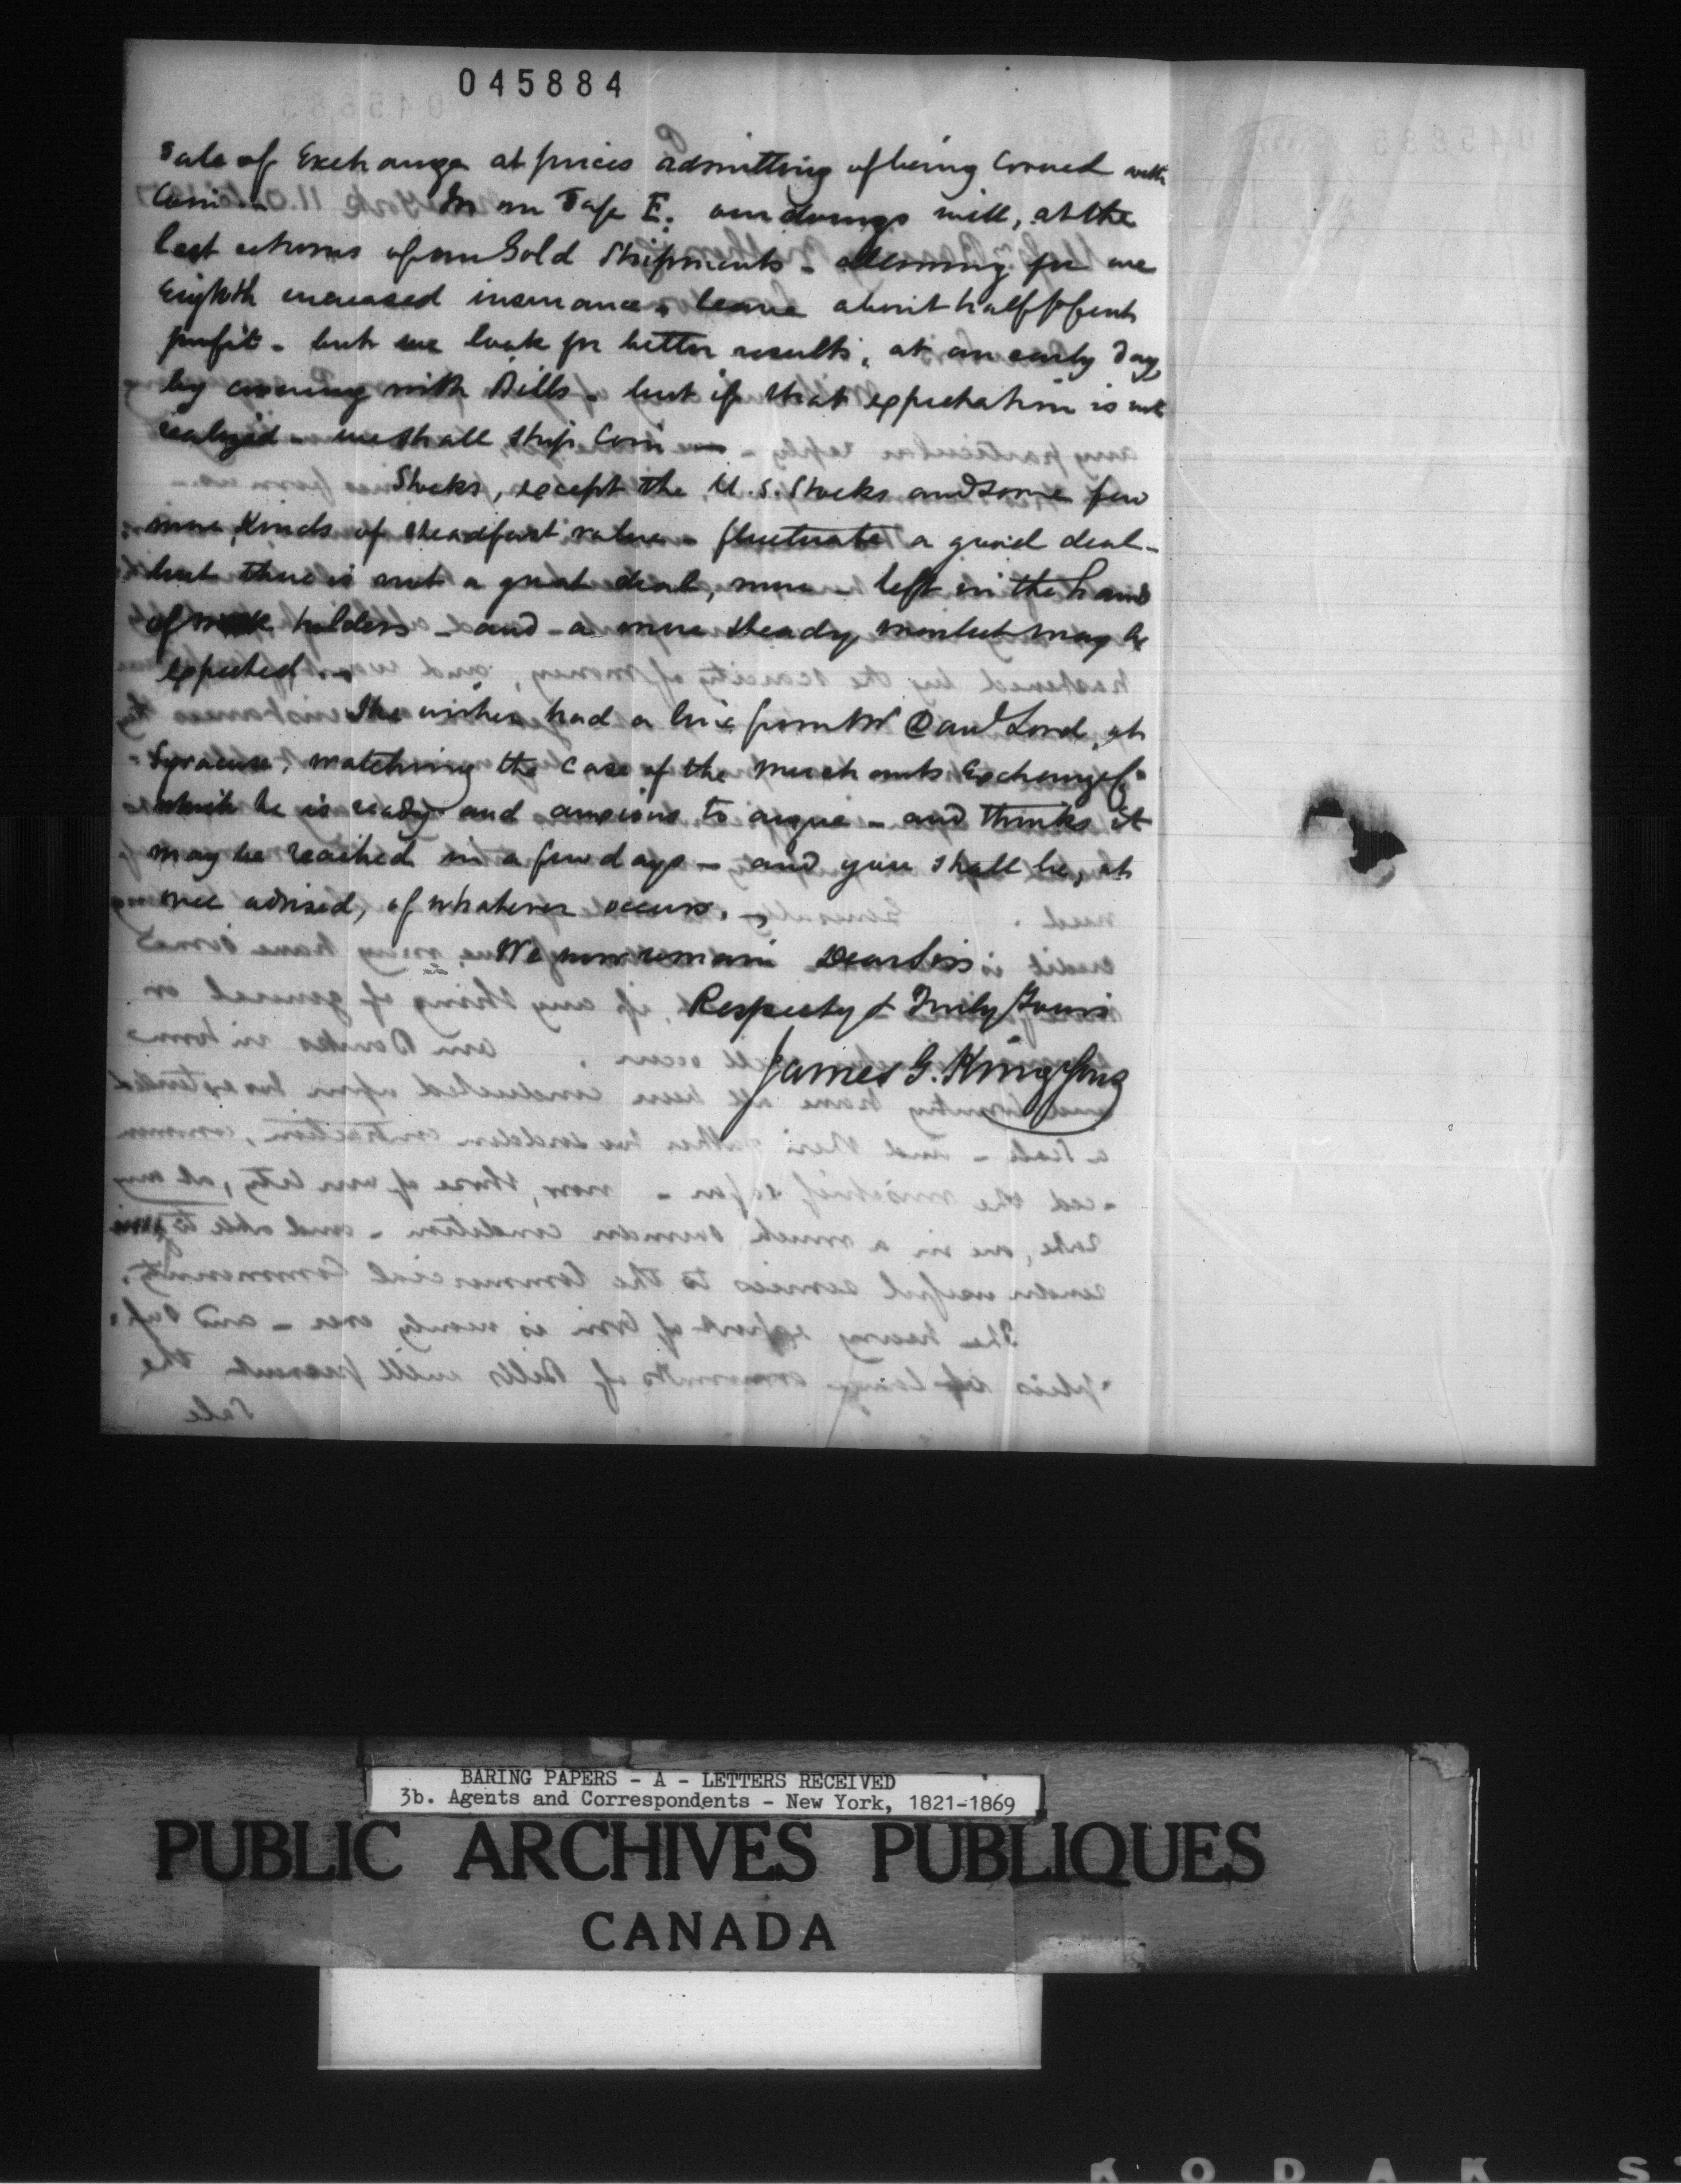 045884
Sale of Exchange at prices admitting of being Covered with
Coin. — In our Tafe E. our doings will, at the
last returns of our Gold Shipments - allowing for one
Eighth increased insurance - leave about half p Cent
profit - but we look for better results, at an early day,
by covering with Bills - but if that expectation is not
realized - we shall ship Coin —
Stocks, except the U.S. Stocks and some few
more kinds of steadfast value - fluctuate a good deal -
but there is not a great deal, more - left in the hands
of weak holders - and - a more steady market may be
expected. -
The writer had a line from Mr Danl Lord, at
Syracuse, watching the Case of the Merchants Exchange Co
which he is ready and anxious to argue - and thinks it
may be reached in a few days - and you shall be, at
once advised, of whatever occurs. -
We now remain Dear Sirs
Respecty & Truly Yours
James G. King Sons
BARING PAPERS - A - LETTERS RECEIVED
3b. Agents and Correspondents - New York, 1821-1869
PUBLIC ARCHIVES PUBLIQUES
CANADA
KODAK S